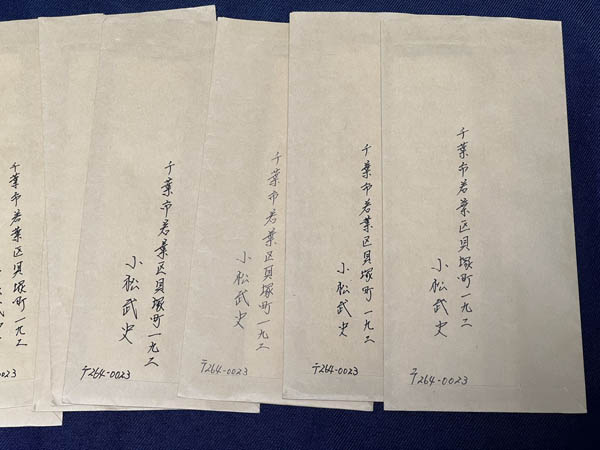 千葉市若葉区貝塚町一九二
小松武史
〒264-0023
千葉市若葉区貝塚町一九二
小松武史
〒264-0023
千葉市若葉区貝塚町一九二
小松武史
〒264-0023
千葉市若葉区貝塚町一九二
小松武史
〒264-0023
千葉市若葉区貝塚町一九二
0023